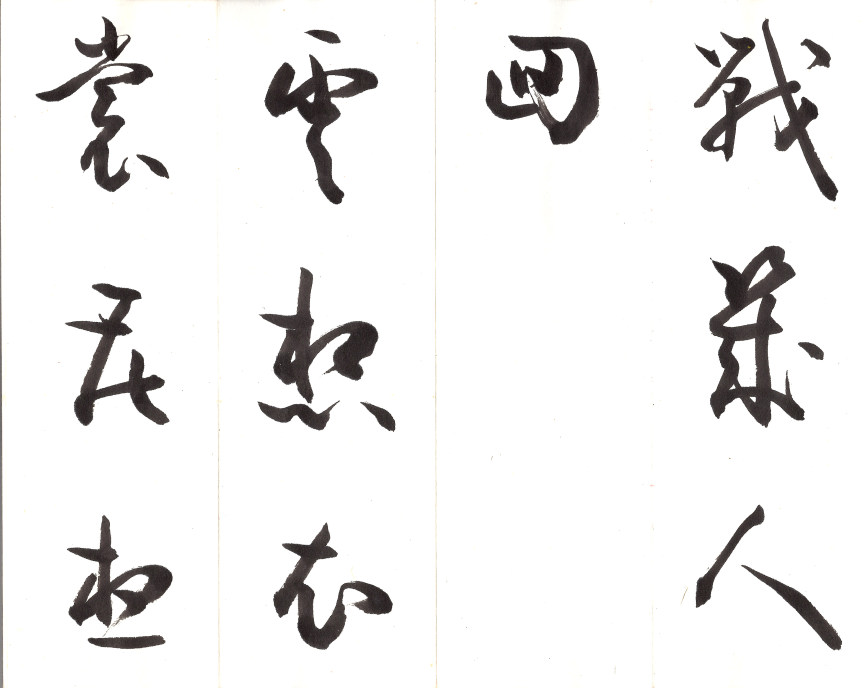 戰幾人
回
雲想衣
裳花想